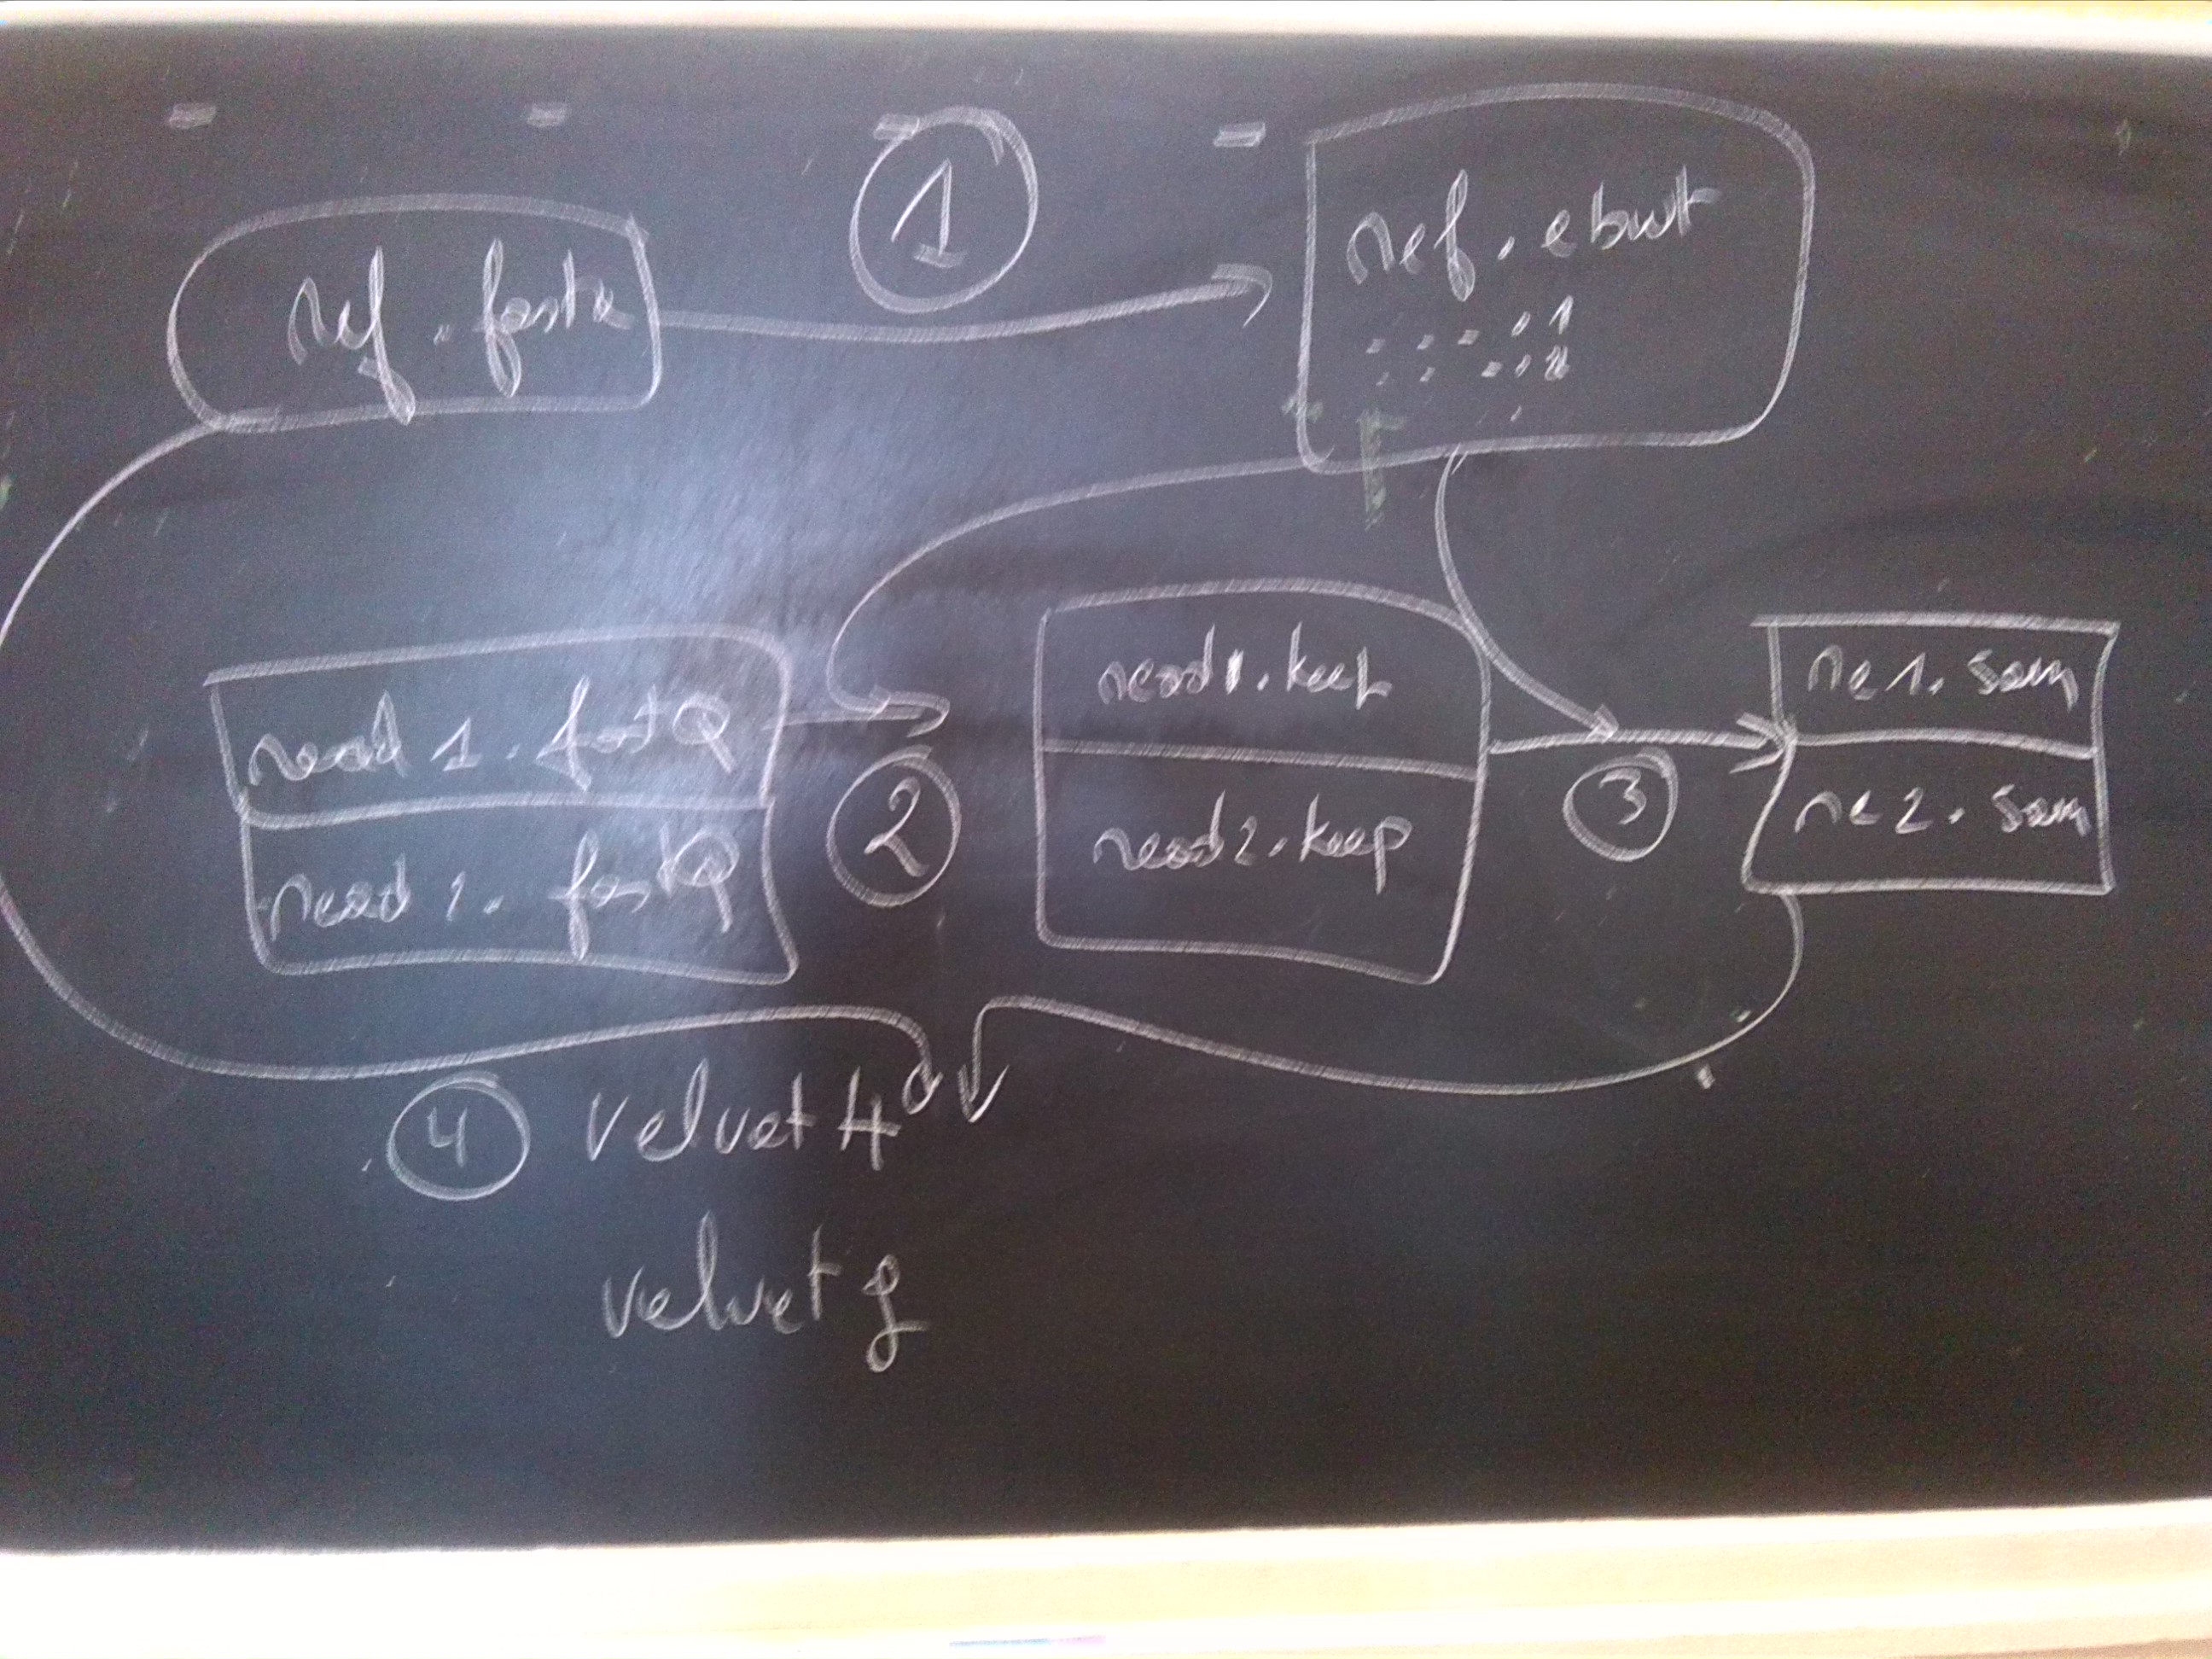 1
ref.fasta
ref.ebwt
.....1
.....2
read1.fastQ
read2.fastQ
2
read1.keep
read2.keep
3
re1.sam
re2.sam
4 velvet h
velvet g